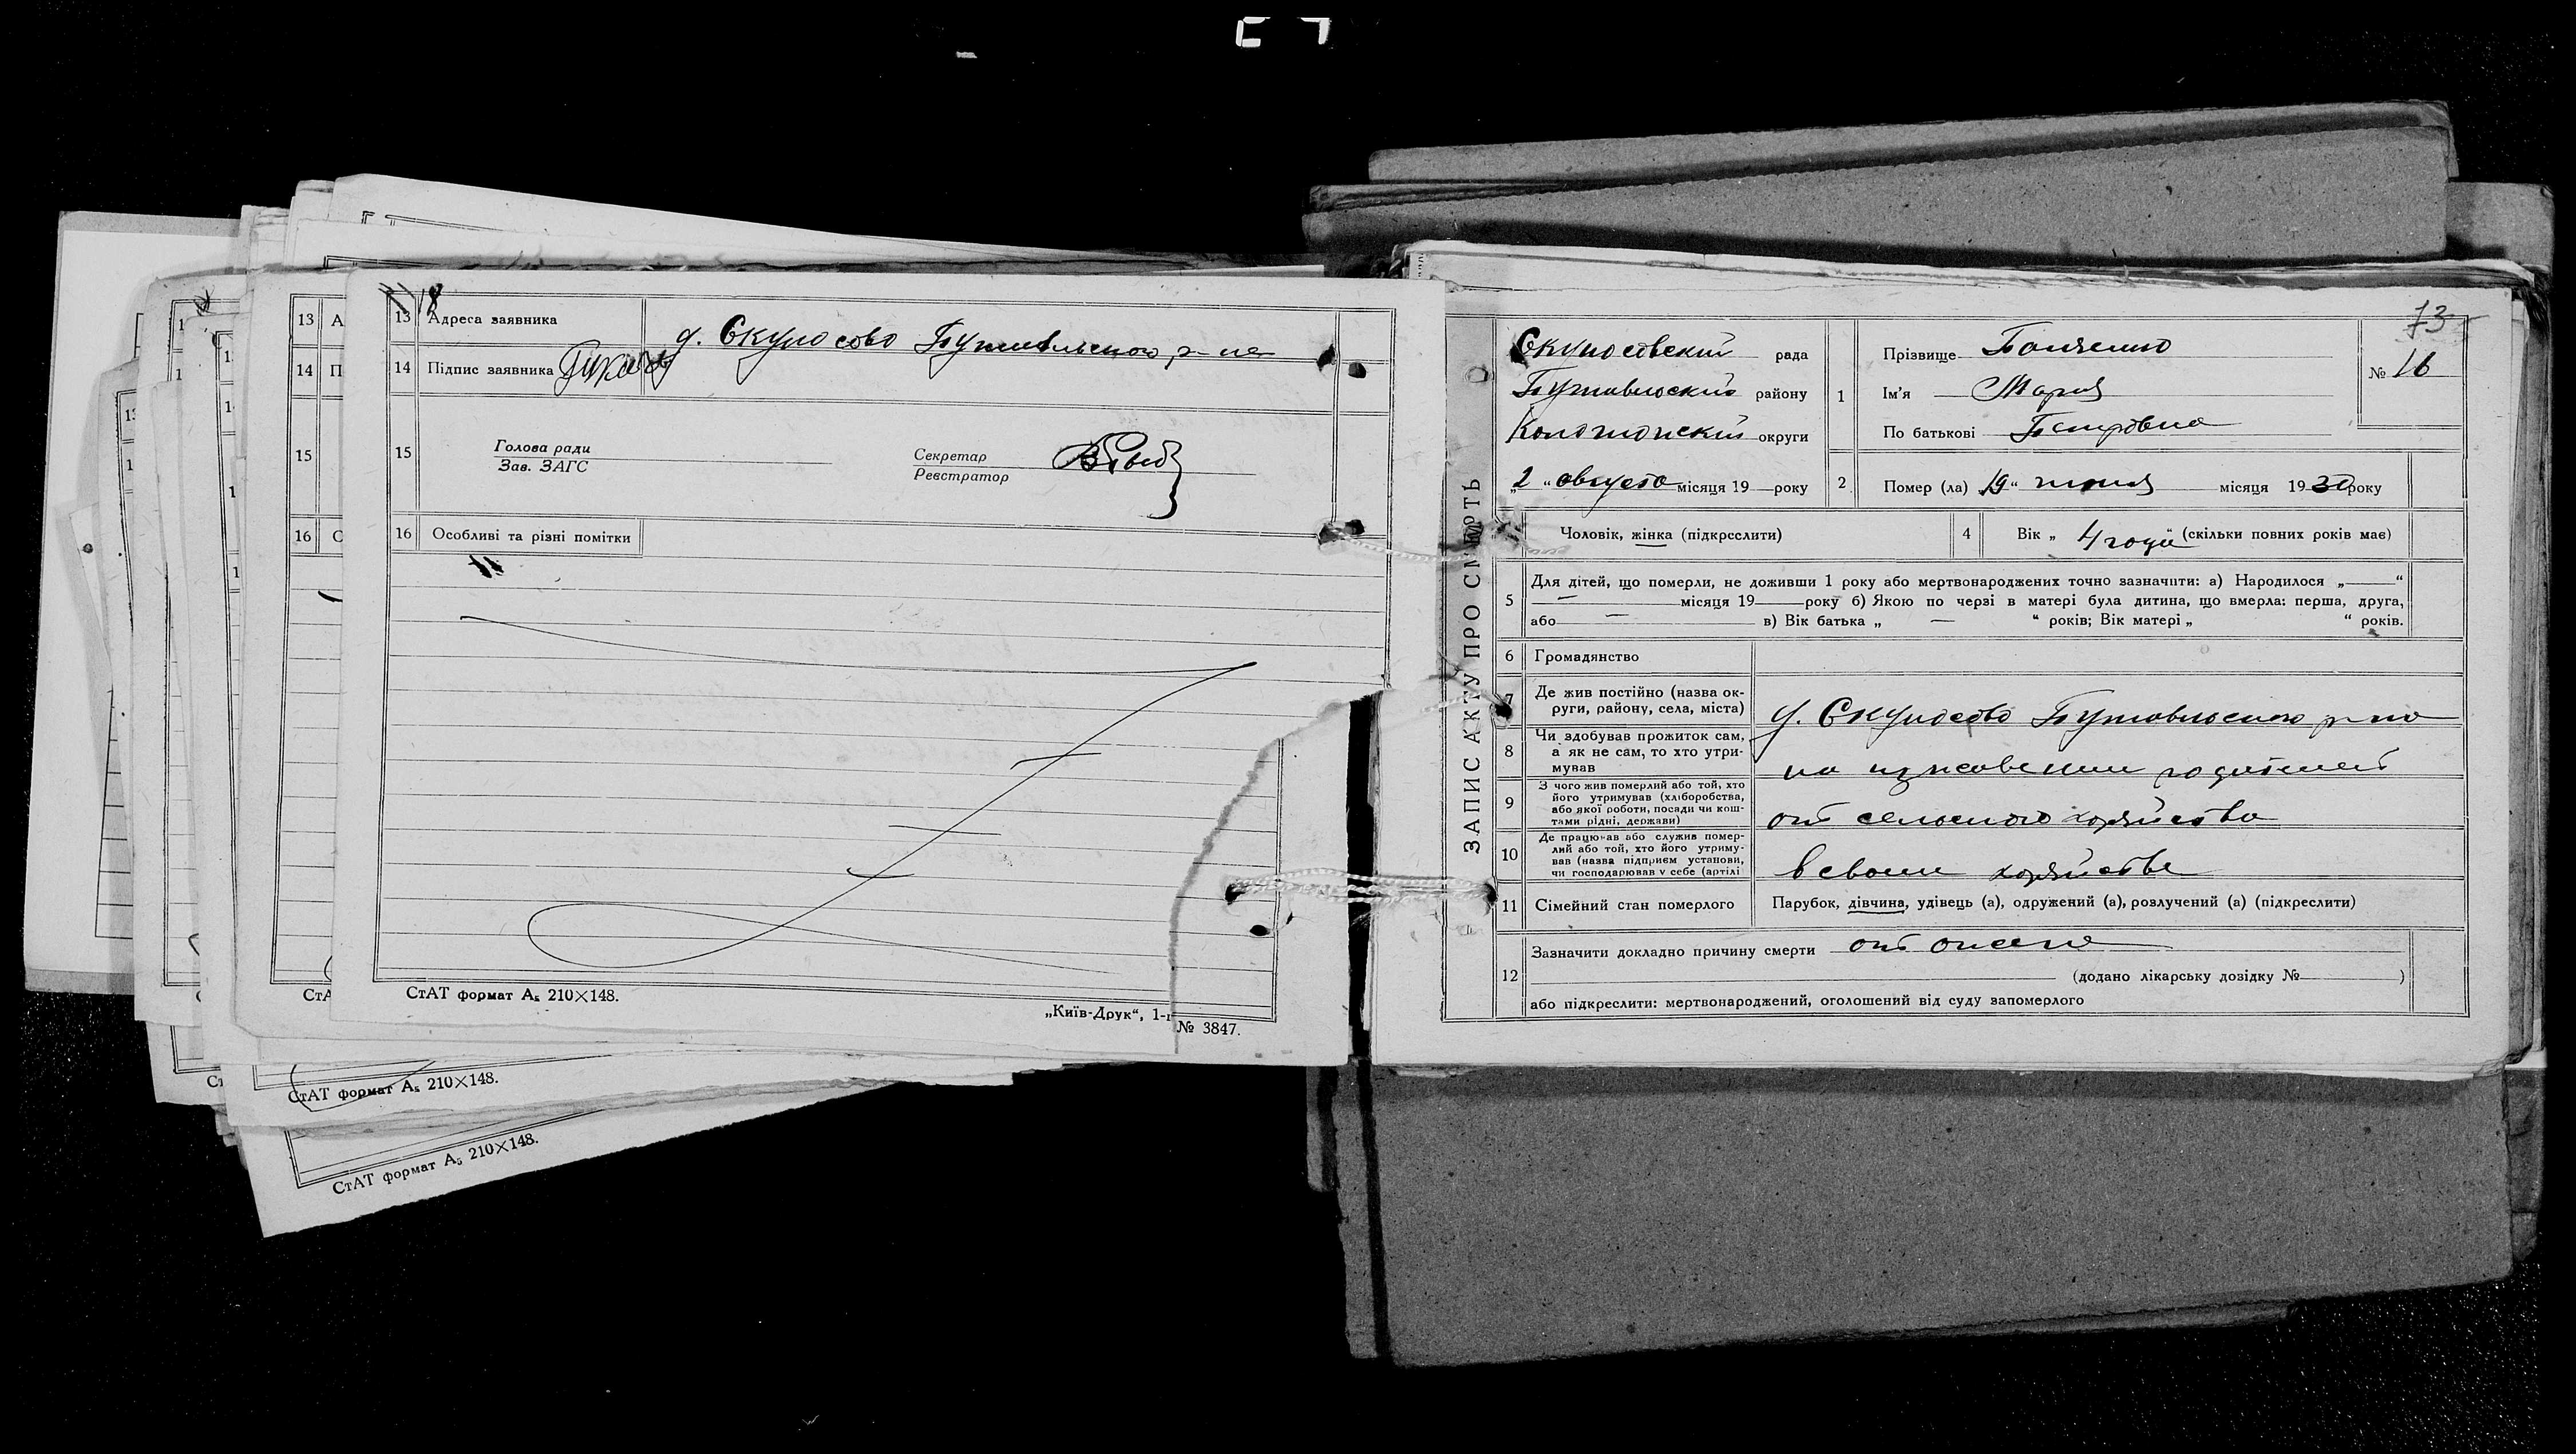 13 Адреса заявника д. Скуносово Путивльского р-на
14 Підпис заявника
15 Голова ради
Зав. ЗАГС
Секретар
Реєстратор
16 Особливі та різні помітки
СтАТ формат А₅ 210×148.
„Київ-Друк“, 1-
№ 3847.
СтАТ формат А₅ 210×148.
СтАТ формат А₅ 210×148.
13 А
14 П
15
16 С
СтА
73
ЗАПИС АКТУ ПРО СМЕРТЬ
Скуносовский рада
Путивльский району
Конотопский округи
„2“ августа місяця 19 — року
1 Прізвище Панченко
Ім'я Мария
По батькові Петровна
№ 16
2 Помер (ла) „19“ місяця 1930 року
Чоловік, жінка (підкреслити)
4 Вік „4 года“ (скільки повних років має)
5 Для дітей, що померли, не доживши 1 року або мертвонароджених точно зазначити: а) Народилося „—“
— місяця 19 — року б) Якою по черзі в матері була дитина, що вмерла: перша, друга,
або — в) Вік батька „ — “ років; Вік матері „ “ років.
6 Громадянство
7 Де жив постійно (назва ок-
руги, району, села, міста) д. Скуносово Путивльского р-на
8 Чи здобував прожиток сам,
а як не сам, то хто утри-
мував на иждивении родителей
9 З чого жив померлий або той, хто
його утримував (хліборобства,
або якої роботи, посади чи кош-
тами рідні, держави) от сельского хозяйства
10 Де працював або служив помер-
лий або той, хто його утриму-
вав (назва підприєм установи,
чи господарював у себе (артілі в своем хозяйстве
11 Сімейний стан померлого Парубок, дівчина, удівець (а), одружений (а), розлучений (а) (підкреслити)
12 Зазначити докладно причину смерти от
(додано лікарську довідку № — )
або підкреслити: мертвонароджений, оголошений від суду запомерлого